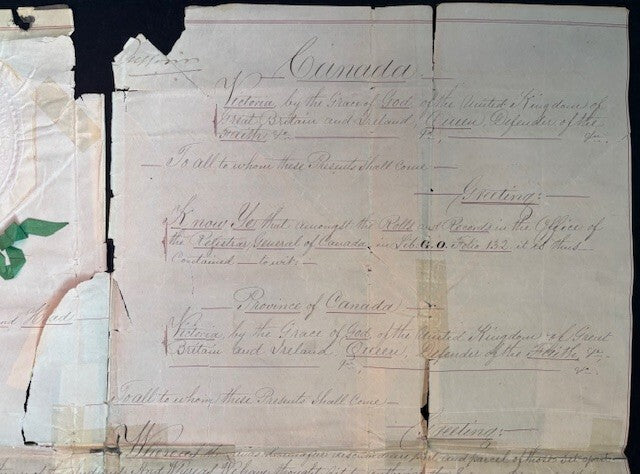 Canada
Victoria by the Grace of God of the United Kingdom of
Great Britain and Ireland, Queen, Defender of the
Faith, &c &c &c
To all to whom these Presents shall come
Greeting:
Know Ye that amongst the Rolls and Records in the Office of
the Registrar General of Canada in Lib G.O. Folio 132 it is thus
Contained to wit:
Province of Canada
and Head
Victoria by the Grace of God of the United Kingdom of Great
Britain and Ireland Queen, Defender of the Faith, &c
&c &c
To all to whom these Presents shall come
Greeting:
Whereas the part and parcel of those set apart